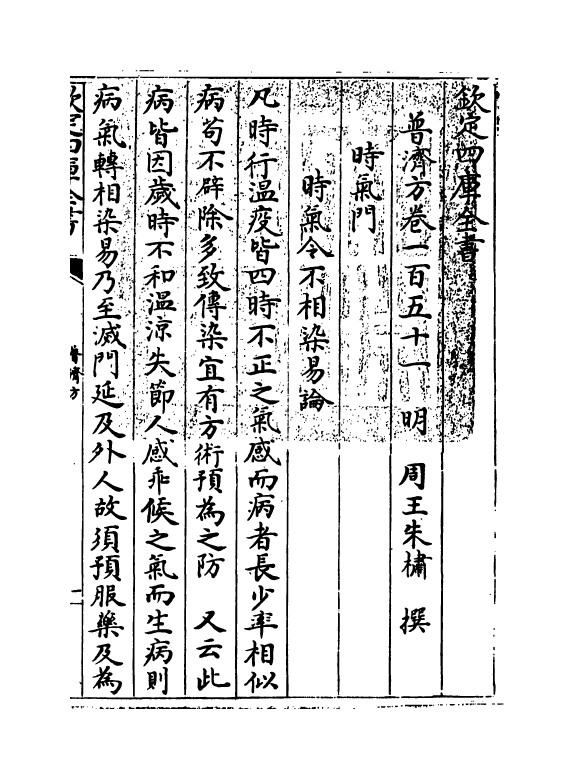 欽定四庫全書
普濟方卷一百五十一　明　周王朱橚　撰
時氣門
時氣令不相染易論
凡時行温疫皆四時不正之氣感而病者長少率相似
病苟不辟除多致傳染宜有方術預為之防　又云此
病皆因歲時不和温涼失節人感乖候之氣而生病則
病氣轉相染易乃至滅門延及外人故須預服藥及為
欽定四庫全書
普濟方